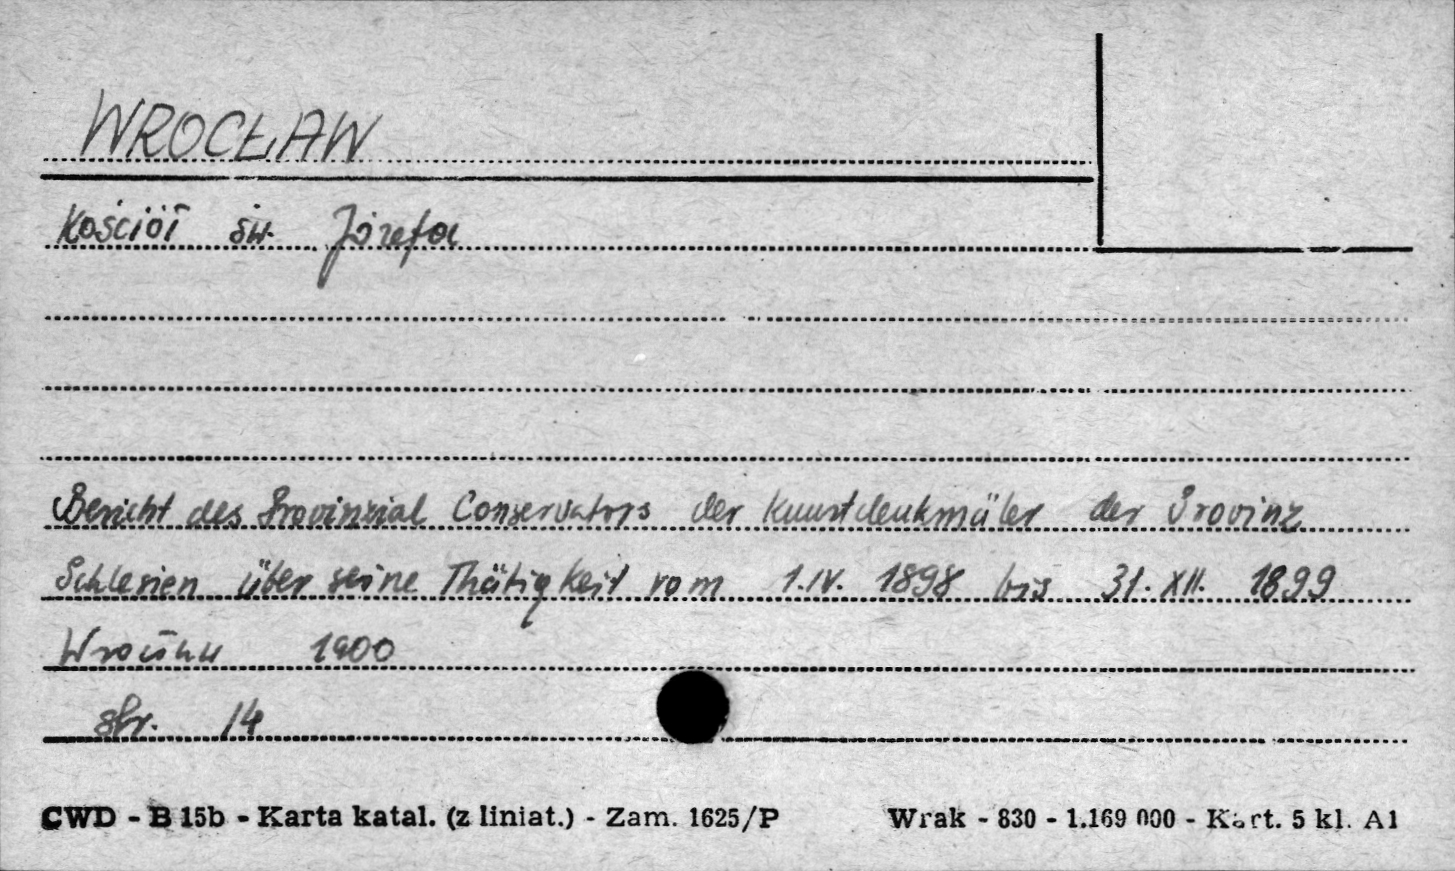 WROCŁAW
Kościół św. Józefa
Bericht des Provinzial Conservators der Kunstdenkmäler der Provinz
Schlesien über seine Thätigkeit vom 1.IV. 1898 bis 31. XII. 1899
1900
str. 14
CWD - B 15b - Karta katal. (z liniat.) - Zam. 1625/P Wrak - 830 - 1.169 000 - Kart. 5 kl. A1